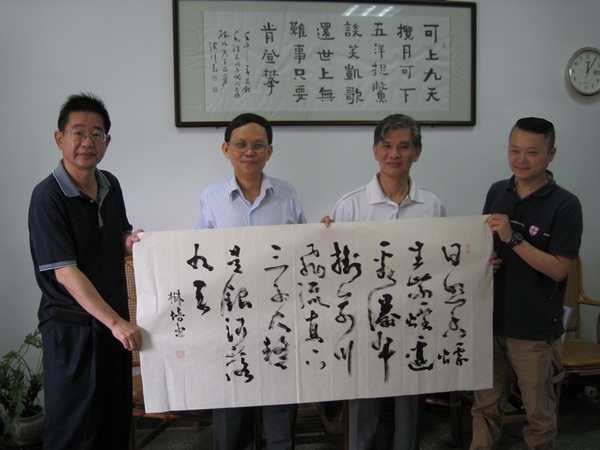 可上九天
攬月可下
五洋捉鱉
談笑凱歌
還世上無
難事只要
肯登攀
日照香爐
生紫煙遙
看瀑布
掛前川
飛流直下
三千尺疑
是銀河落
九天